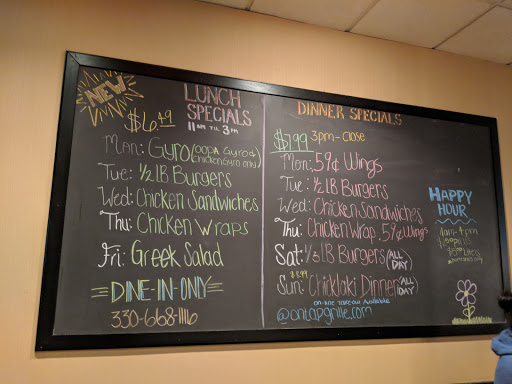 NEW
LUNCH
SPECIALS
11AM TIL 3PM
$6.49
Mon: Gyro (OOPA Gyro &
Chicken Gyro only)
Tue: 1/2 lB Burgers
Wed: Chicken Sandwiches
Thu: Chicken Wraps
Fri: Greek Salad
DINE-IN-ONLY
330-668-1116
DINNER SPECIALS
$7.99 3pm-close
Mon: 59¢ Wings
Tue: 1/2 lB Burgers
Wed: Chicken Sandwiches
Thu: Chicken Wrap. 59¢ Wings
Sat: 1/3 lB Burgers (ALL DAY)
$8.99
Sun: Chicklaki Dinner (ALL DAY)
on-line take out Available
@ontapgrille.com
HAPPY
HOUR